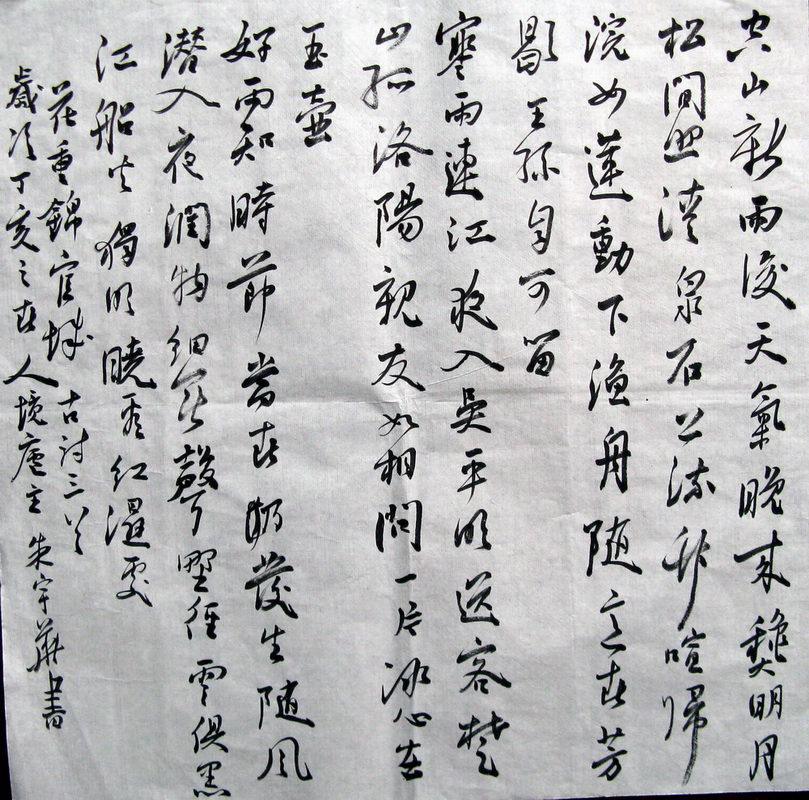 空山新雨後天氣晚来穐明月
松間照清泉石上流竹喧歸
浣女蓮動下漁舟随意春芳
歇王孫自可留
寒雨連江夜入吳平明送客楚
山孤洛陽親友如相問一片冰心在
玉壺
好雨知時節當春乃發生随風
潜入夜潤物細無聲野徑雲俱黑
江船火獨明曉看紅濕處
花重錦官城 古詩三首
歲次丁亥之春人境廬主朱宇華書